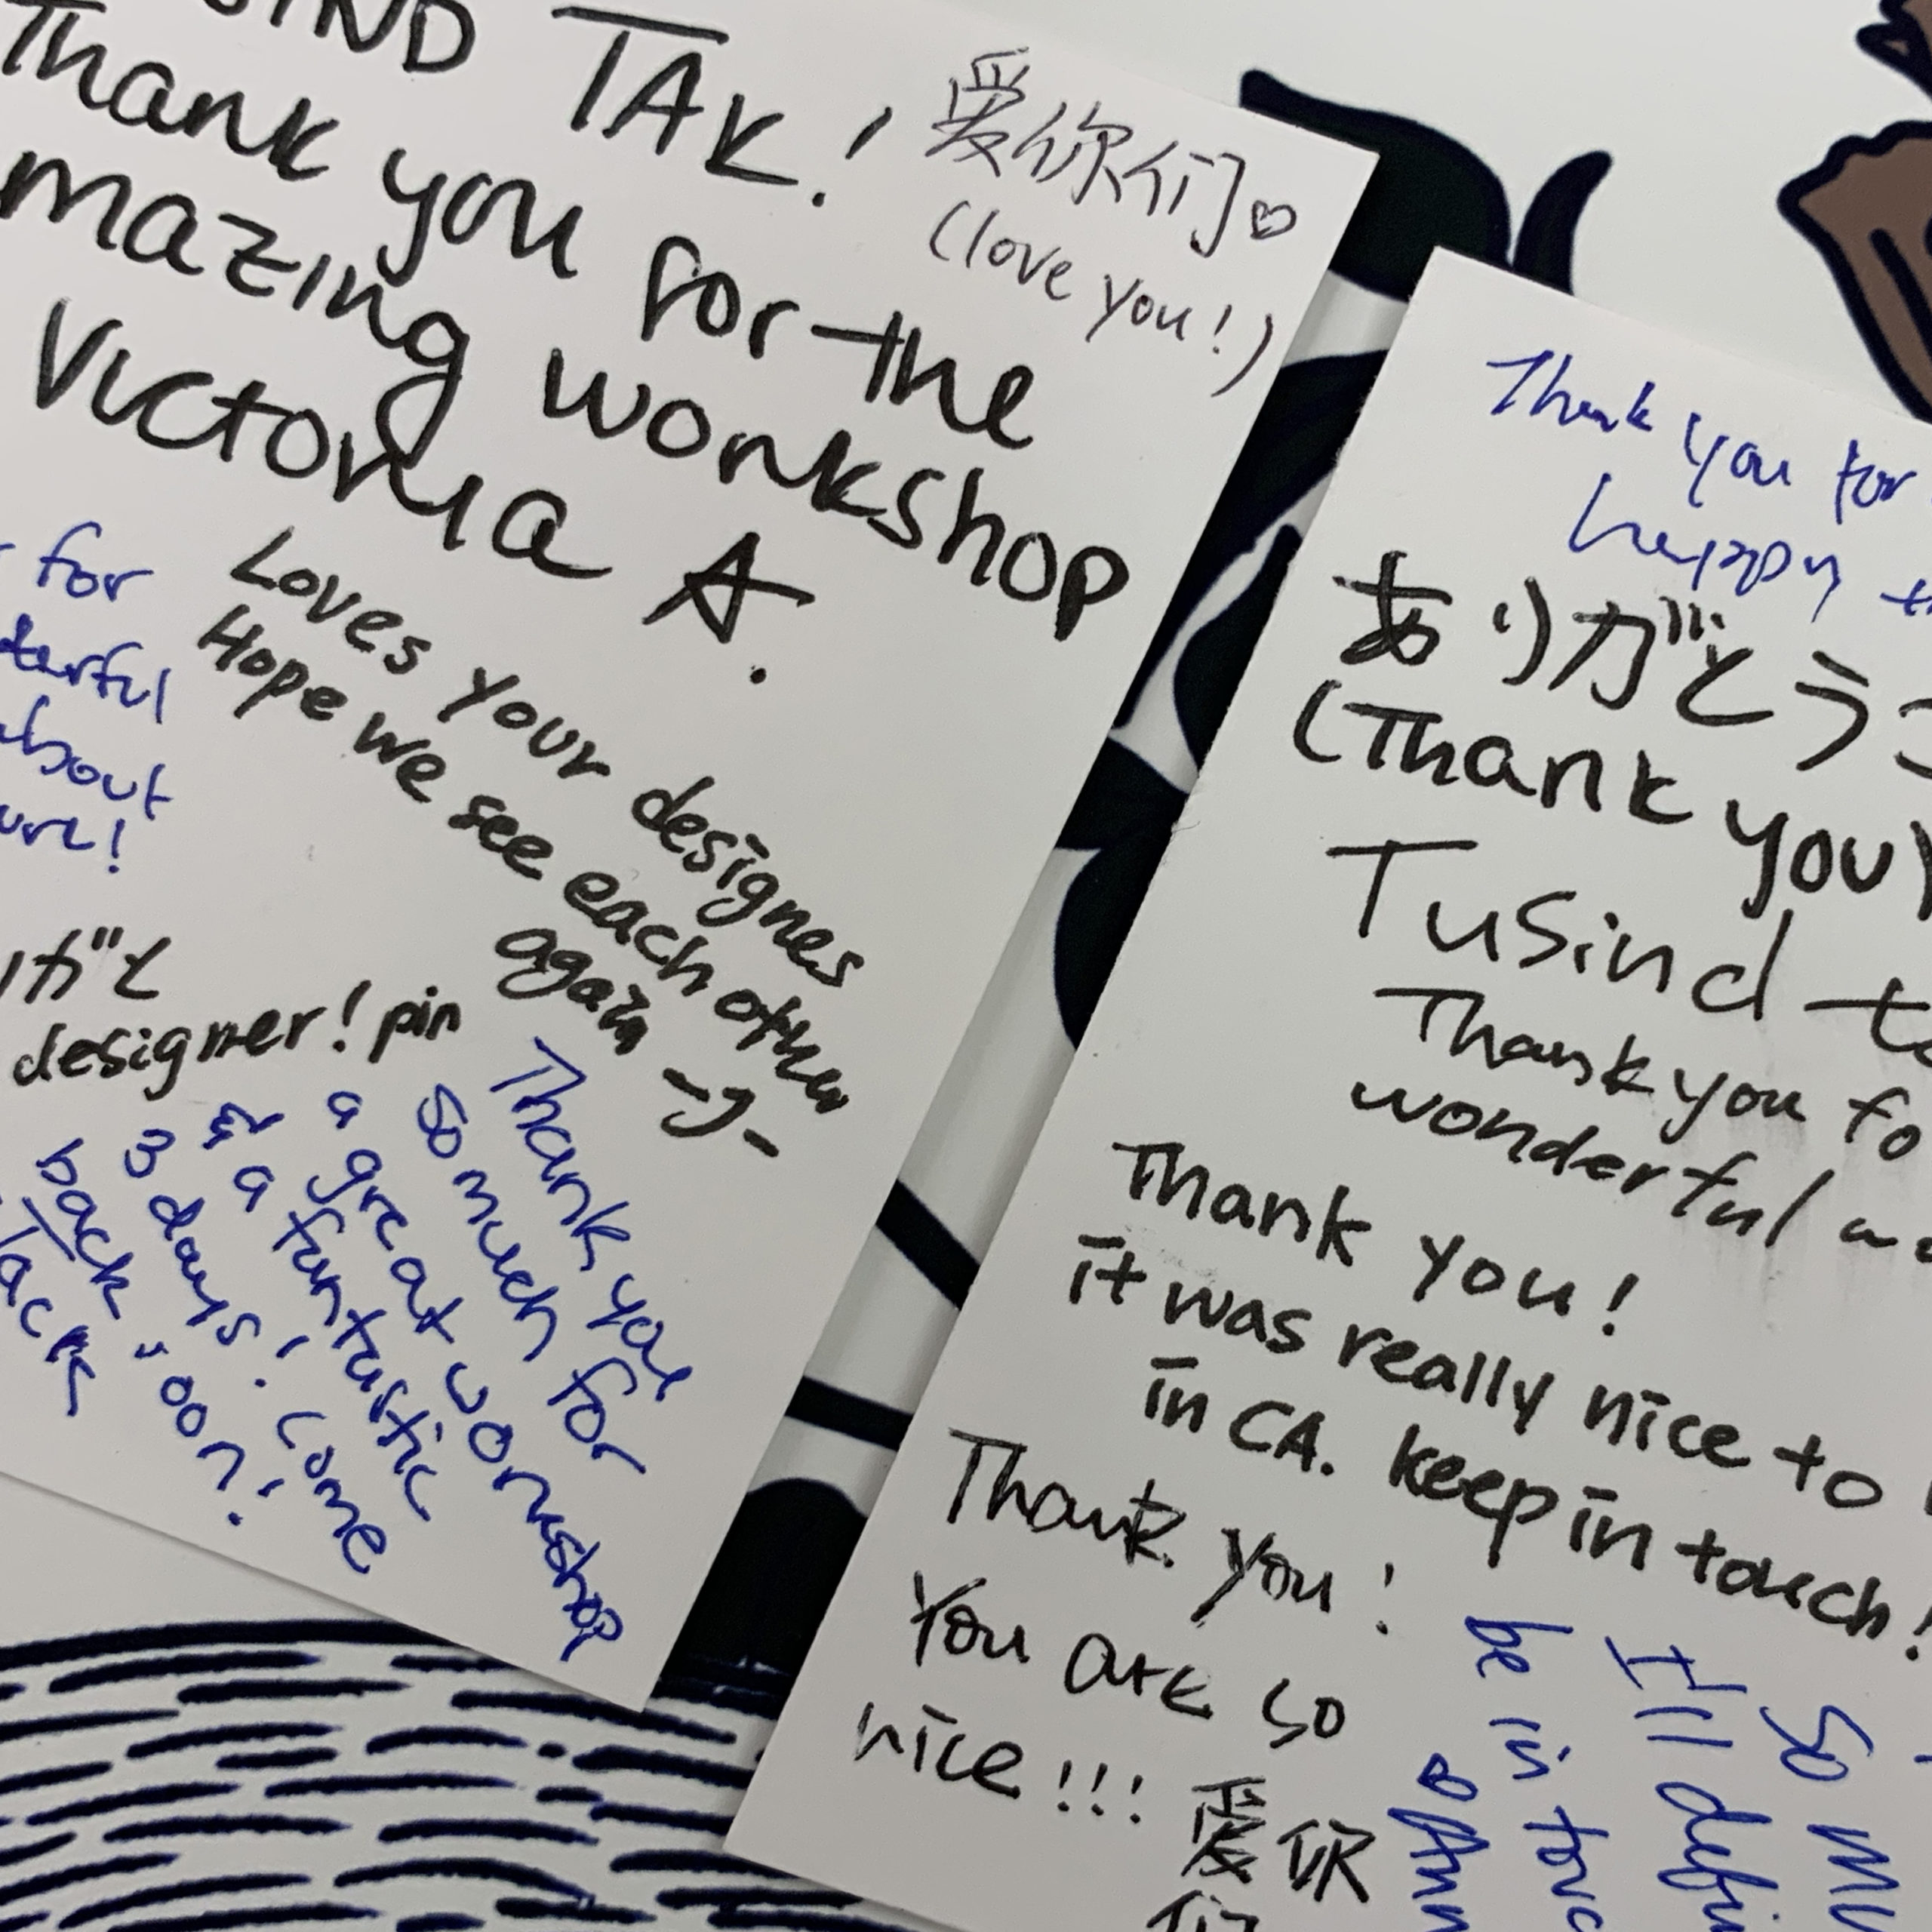 TAK!
爱你们♡
(love you!)
Thank you for the
mazing workshop
Victoria A.
for
about
Loves your designes
Hope we see each other
again
がと
designer! pin
Thank you
so much for
a great workshop
& a fantastic
3 days! Come
back soon!
Thank you for
happy
ありがとう
(Thank you)
Tusind
Thank you
wonderful
Thank you!
it was really nice to
in CA. keep in touch!
Thank you!
You are so
nice!!! 爱你
们
So
I'll
be in